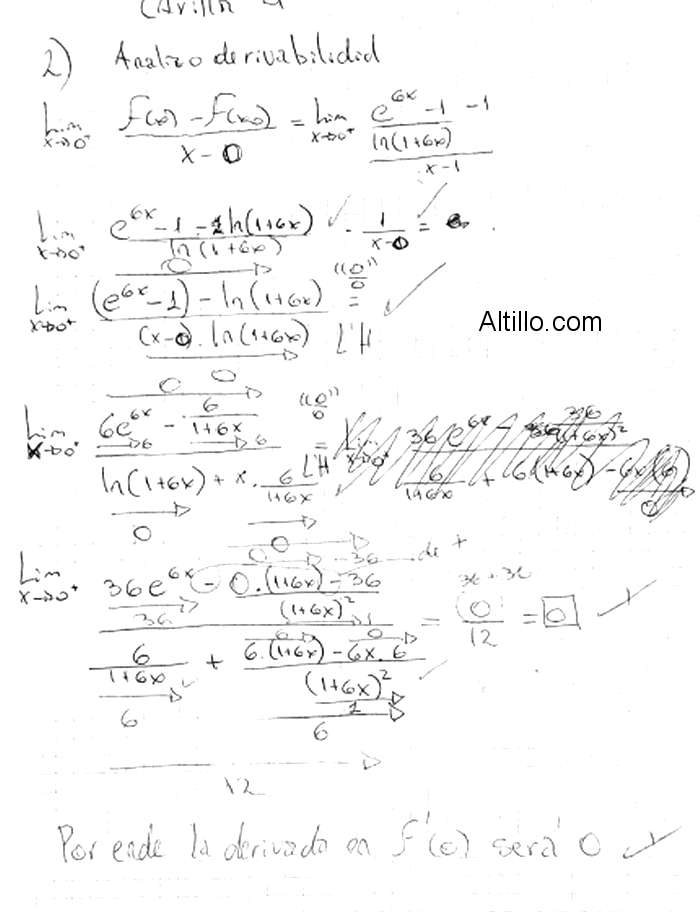 Carilla 4
2) Analizo derivabilidad
Lim x→0⁺ (f(x) - f(x₀))/(x - 0) = Lim x→0⁺ ((e^{6x} - 1)/(ln(1+6x)) - 1)/(x-1)
Lim x→0⁺ (e^{6x} - 1 - 1 ln(1+6x))/(ln(1+6x)) · 1/(x-0) =
0
Lim x→0⁺ ((e^{6x} - 1) - ln(1+6x))/((x-0) · ln(1+6x)) "0/0" = L'H
Altillo.com
0 0
Lim x→0⁺ (6e^{6x} - 6/(1+6x))/(ln(1+6x) + x · 6/(1+6x)) "0/0" = L'H
→6 →6
0 0
0 -36 de +
Lim x→0⁺ (36e^{6x} - (0·(1+6x) - 36)/((1+6x)²))/(6/(1+6x) + (6·(1+6x) - 6x·6)/((1+6x)²)) = 0/12 = 0
36 1 36 + 36
6 6 0 1
6
12
Por ende la derivada en f'(0) será 0